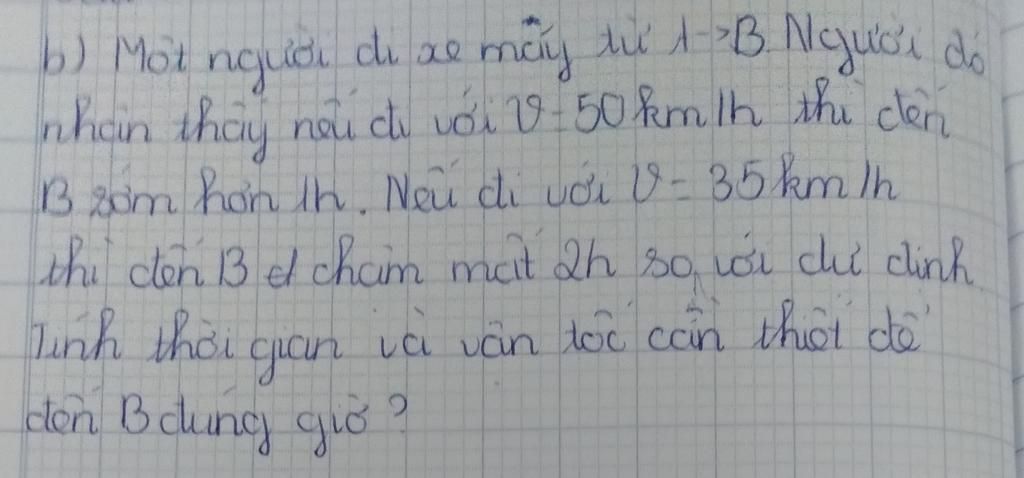 b) Một người đi xe máy từ A->B. Người đó
nhận thấy nếu đi với v=50km/h thì đến
B sớm hơn 1h. Nếu đi với v=35km/h
thì đến B chậm mất 2h so với dự định.
Tính thời gian và vận tốc cần thiết để
đến B đúng giờ?